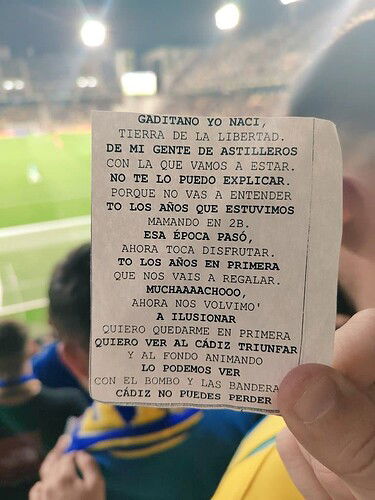 GADITANO YO NACI,
TIERRA DE LA LIBERTAD.
DE MI GENTE DE ASTILLEROS
CON LA QUE VAMOS A ESTAR.
NO TE LO PUEDO EXPLICAR.
PORQUE NO VAS A ENTENDER
TO LOS AÑOS QUE ESTUVIMOS
MAMANDO EN 2B.
ESA ÉPOCA PASÓ,
AHORA TOCA DISFRUTAR.
TO LOS AÑOS EN PRIMERA
QUE NOS VAIS A REGALAR.
MUCHAAAACHOOO,
AHORA NOS VOLVIMO'
A ILUSIONAR
QUIERO QUEDARME EN PRIMERA
QUIERO VER AL CÁDIZ TRIUNFAR
Y AL FONDO ANIMANDO
LO PODEMOS VER
CON EL BOMBO Y LAS BANDERA
CÁDIZ NO PUEDES PERDER